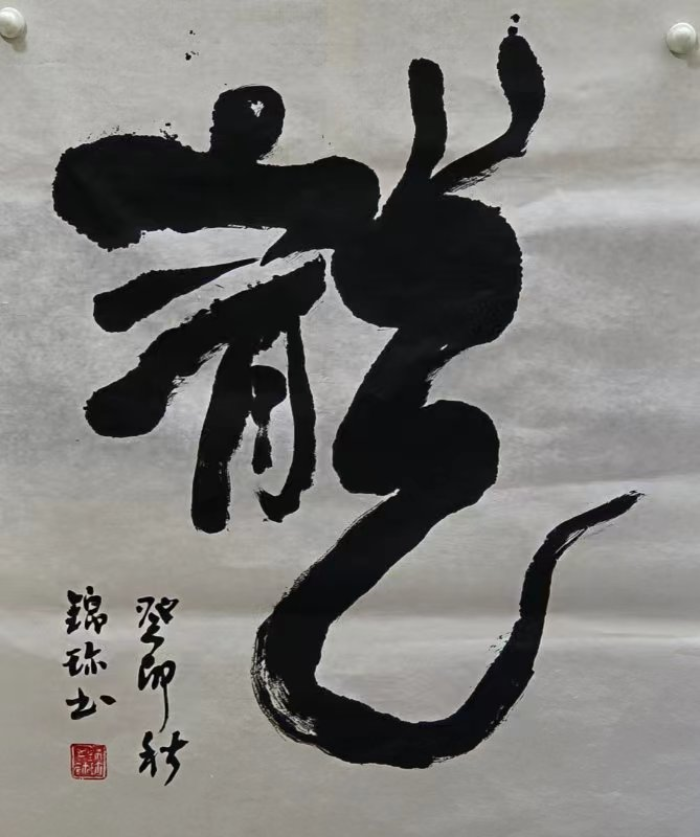 龍
癸卯秋
錦珎书